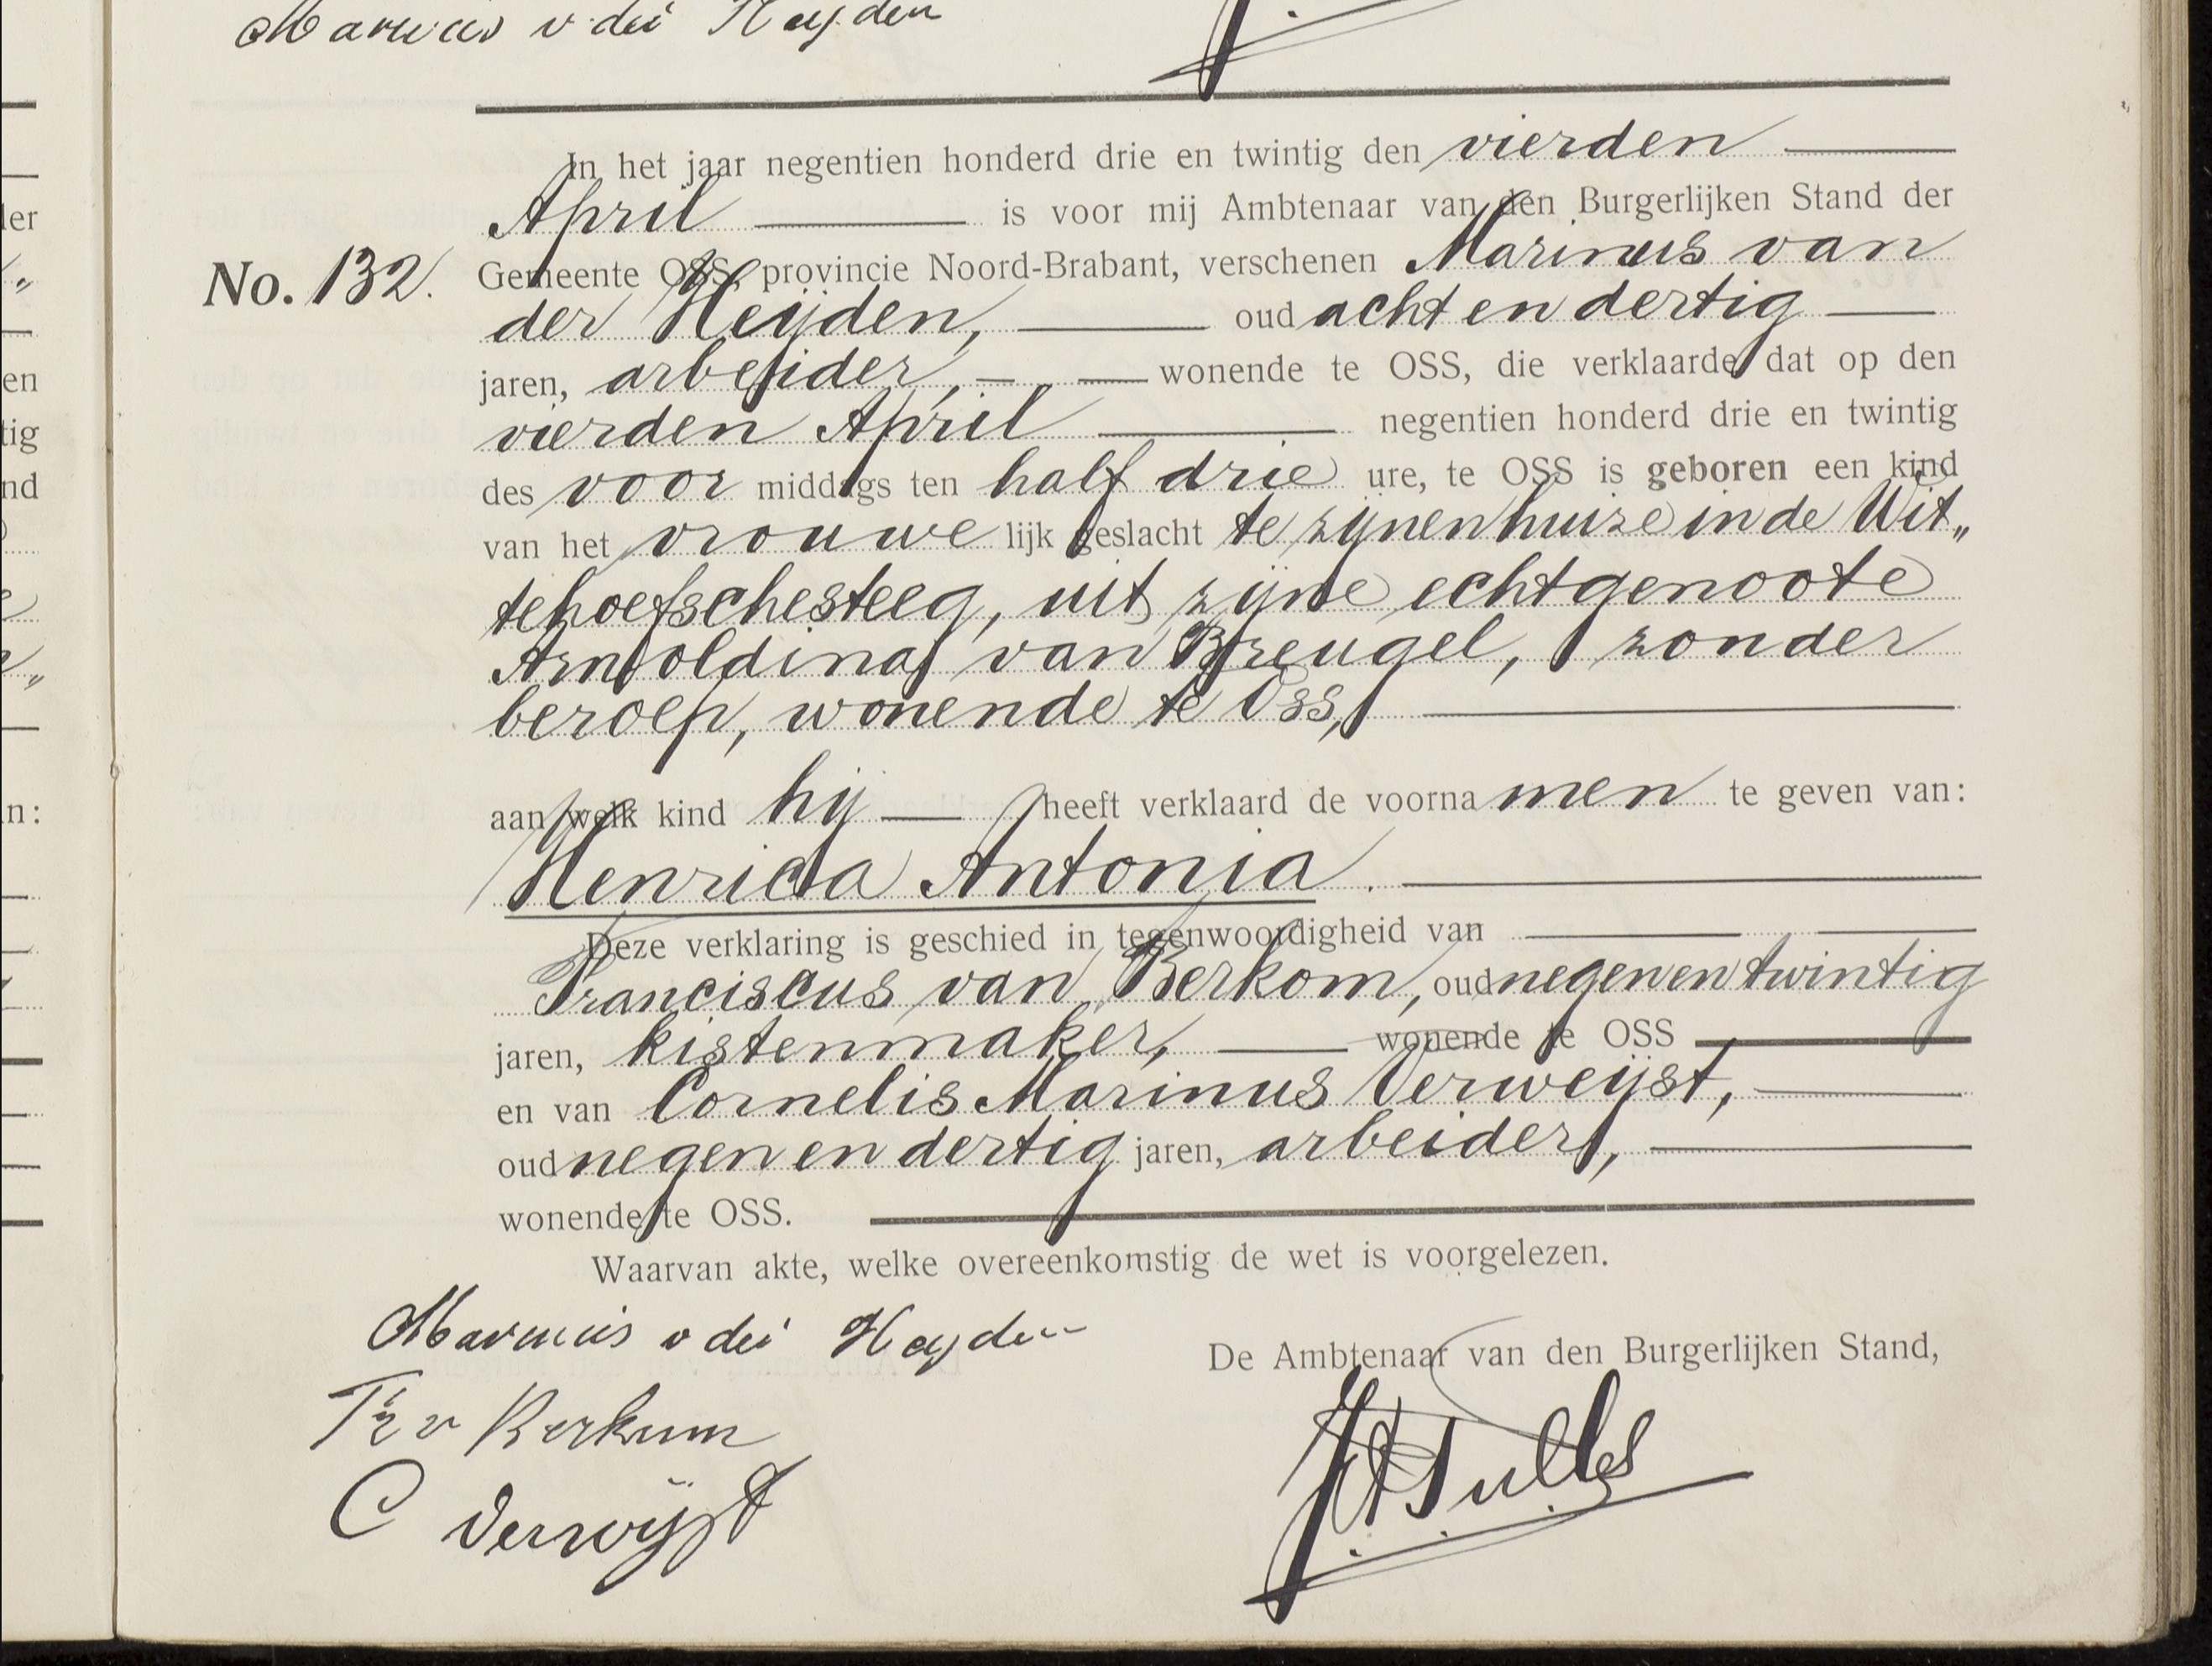 Marinus v der Heyden
In het jaar negentien honderd drie en twintig den vierden
April is voor mij Ambtenaar van den Burgerlijken Stand der
No. 132. Gemeente OSS, provincie Noord-Brabant, verschenen Marinus van
der Heijden, oud acht en dertig
jaren, arbeider, wonende te OSS, die verklaarde dat op den
vierden April negentien honderd drie en twintig
des voor middags ten half drie ure, te OSS is geboren een kind
van het vrouwe lijk geslacht te zijnen huize in de Wit„
tehoefschesteeg, uit zijne echtgenoote
Arnoldina van Breugel, zonder
beroep, wonende te Oss,
aan welk kind hij heeft verklaard de voorna men te geven van:
Henrica Antonia.
Deze verklaring is geschied in tegenwoordigheid van
Franciscus van Berkom, oud negen en twintig
jaren, kistenmaker, wonende te OSS
en van Cornelis Marinus Verweijst,
oud negen en dertig jaren, arbeider,
wonende te OSS.
Waarvan akte, welke overeenkomstig de wet is voorgelezen.
Marinus v der Heyden
De Ambtenaar van den Burgerlijken Stand,
Fr v Berkum
C Verwijst